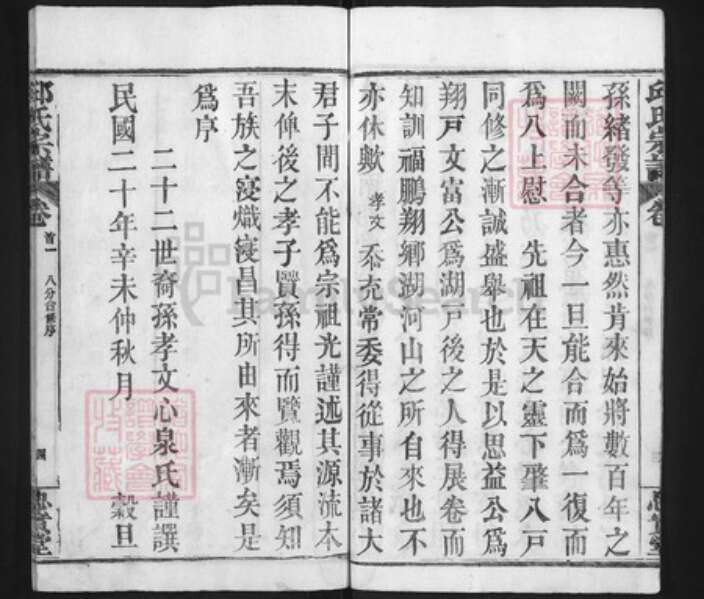 邱氏宗譜
卷
孫緒發等亦惠然肯來始將數百年之
闕而未合者今一旦能合而爲一復而
爲八上慰 先祖在天之靈下肇八戸
同修之漸誠盛舉也於是以思益公爲
翔戸文富公爲湖戸後之人得展卷而
知訓福鵬翔鄉湖河山之所自來也不
亦休歟 孝文 忝充常委得從事於諸大
君子間不能爲宗祖光謹述其源流本
末俾後之孝子賢孫得而覽觀焉須知
吾族之寖熾寖昌其所由來者漸矣是
爲序
二十二世裔孫孝文心泉氏謹譔
民國二十年辛未仲秋月 穀旦
邱氏宗譜
卷首一
八分合修序
四
FamilySearch